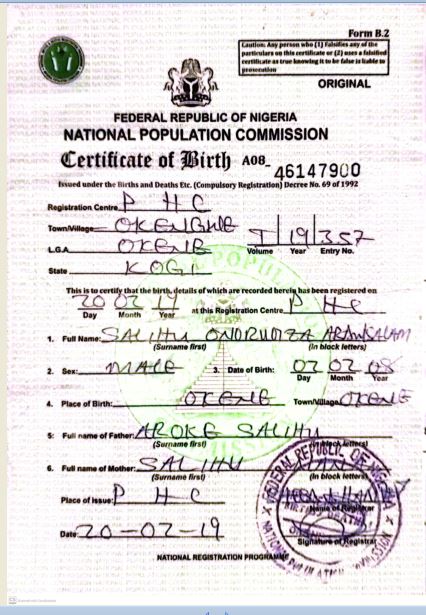 Form B.2
Caution: Any person who (1) Falsifies any of the
particulars on this certificate or (2) uses a falsified
certificate as true knowing it to be false is liable to
prosecution
ORIGINAL
FEDERAL REPUBLIC OF NIGERIA
NATIONAL POPULATION COMMISSION
Certificate of Birth A08_ 46147900
Issued under the Births and Deaths Etc. (Compulsory Registration) Decree No. 69 of 1992
Registration Centre P H C
Town/Village OKENGWE
L.G.A OKENE
I 19 357
Volume Year Entry No.
State KOGI
This is to certify that the birth, details of which are recorded herein has been registered on
20 02 19 at this Registration Centre P H C
Day Month Year
1. Full Name: SALIHU ONORUOIZA
(Surname first) (in block letters)
2. Sex: MALE 3. Date of Birth: 02 02 08
Day Month Year
4. Place of Birth: OKENE Town/Village OKENE
5: Full name of Father: AROKE SALIHU
(Surname first) (in block letters)
6. Full name of Mother: SALIHU
(Surname first) (in block letters)
Place of Issue: P H C
Name of Registrar
Date: 20-02-19
Signature of Registrar
NATIONAL REGISTRATION PROGRAMME
FEDERAL REPUBLIC OF NIGERIA
NATIONAL POPULATION COMMISSION